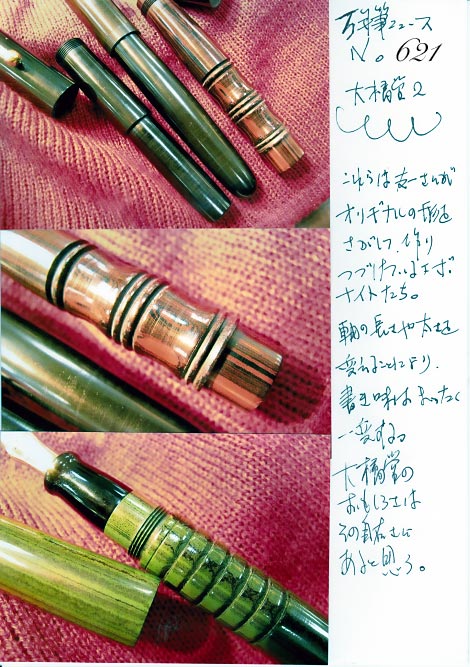 万年筆ニュース
No 621
大橋堂2
これらは友一さんが
オリギナルの形を
さがして、作り
つづけているエボ
ナイトたち。
軸の長さや太さを
変えることにより、
書き味はまったく
一変する。
大橋堂の
おもしろさは
その自在さに
あると思う。